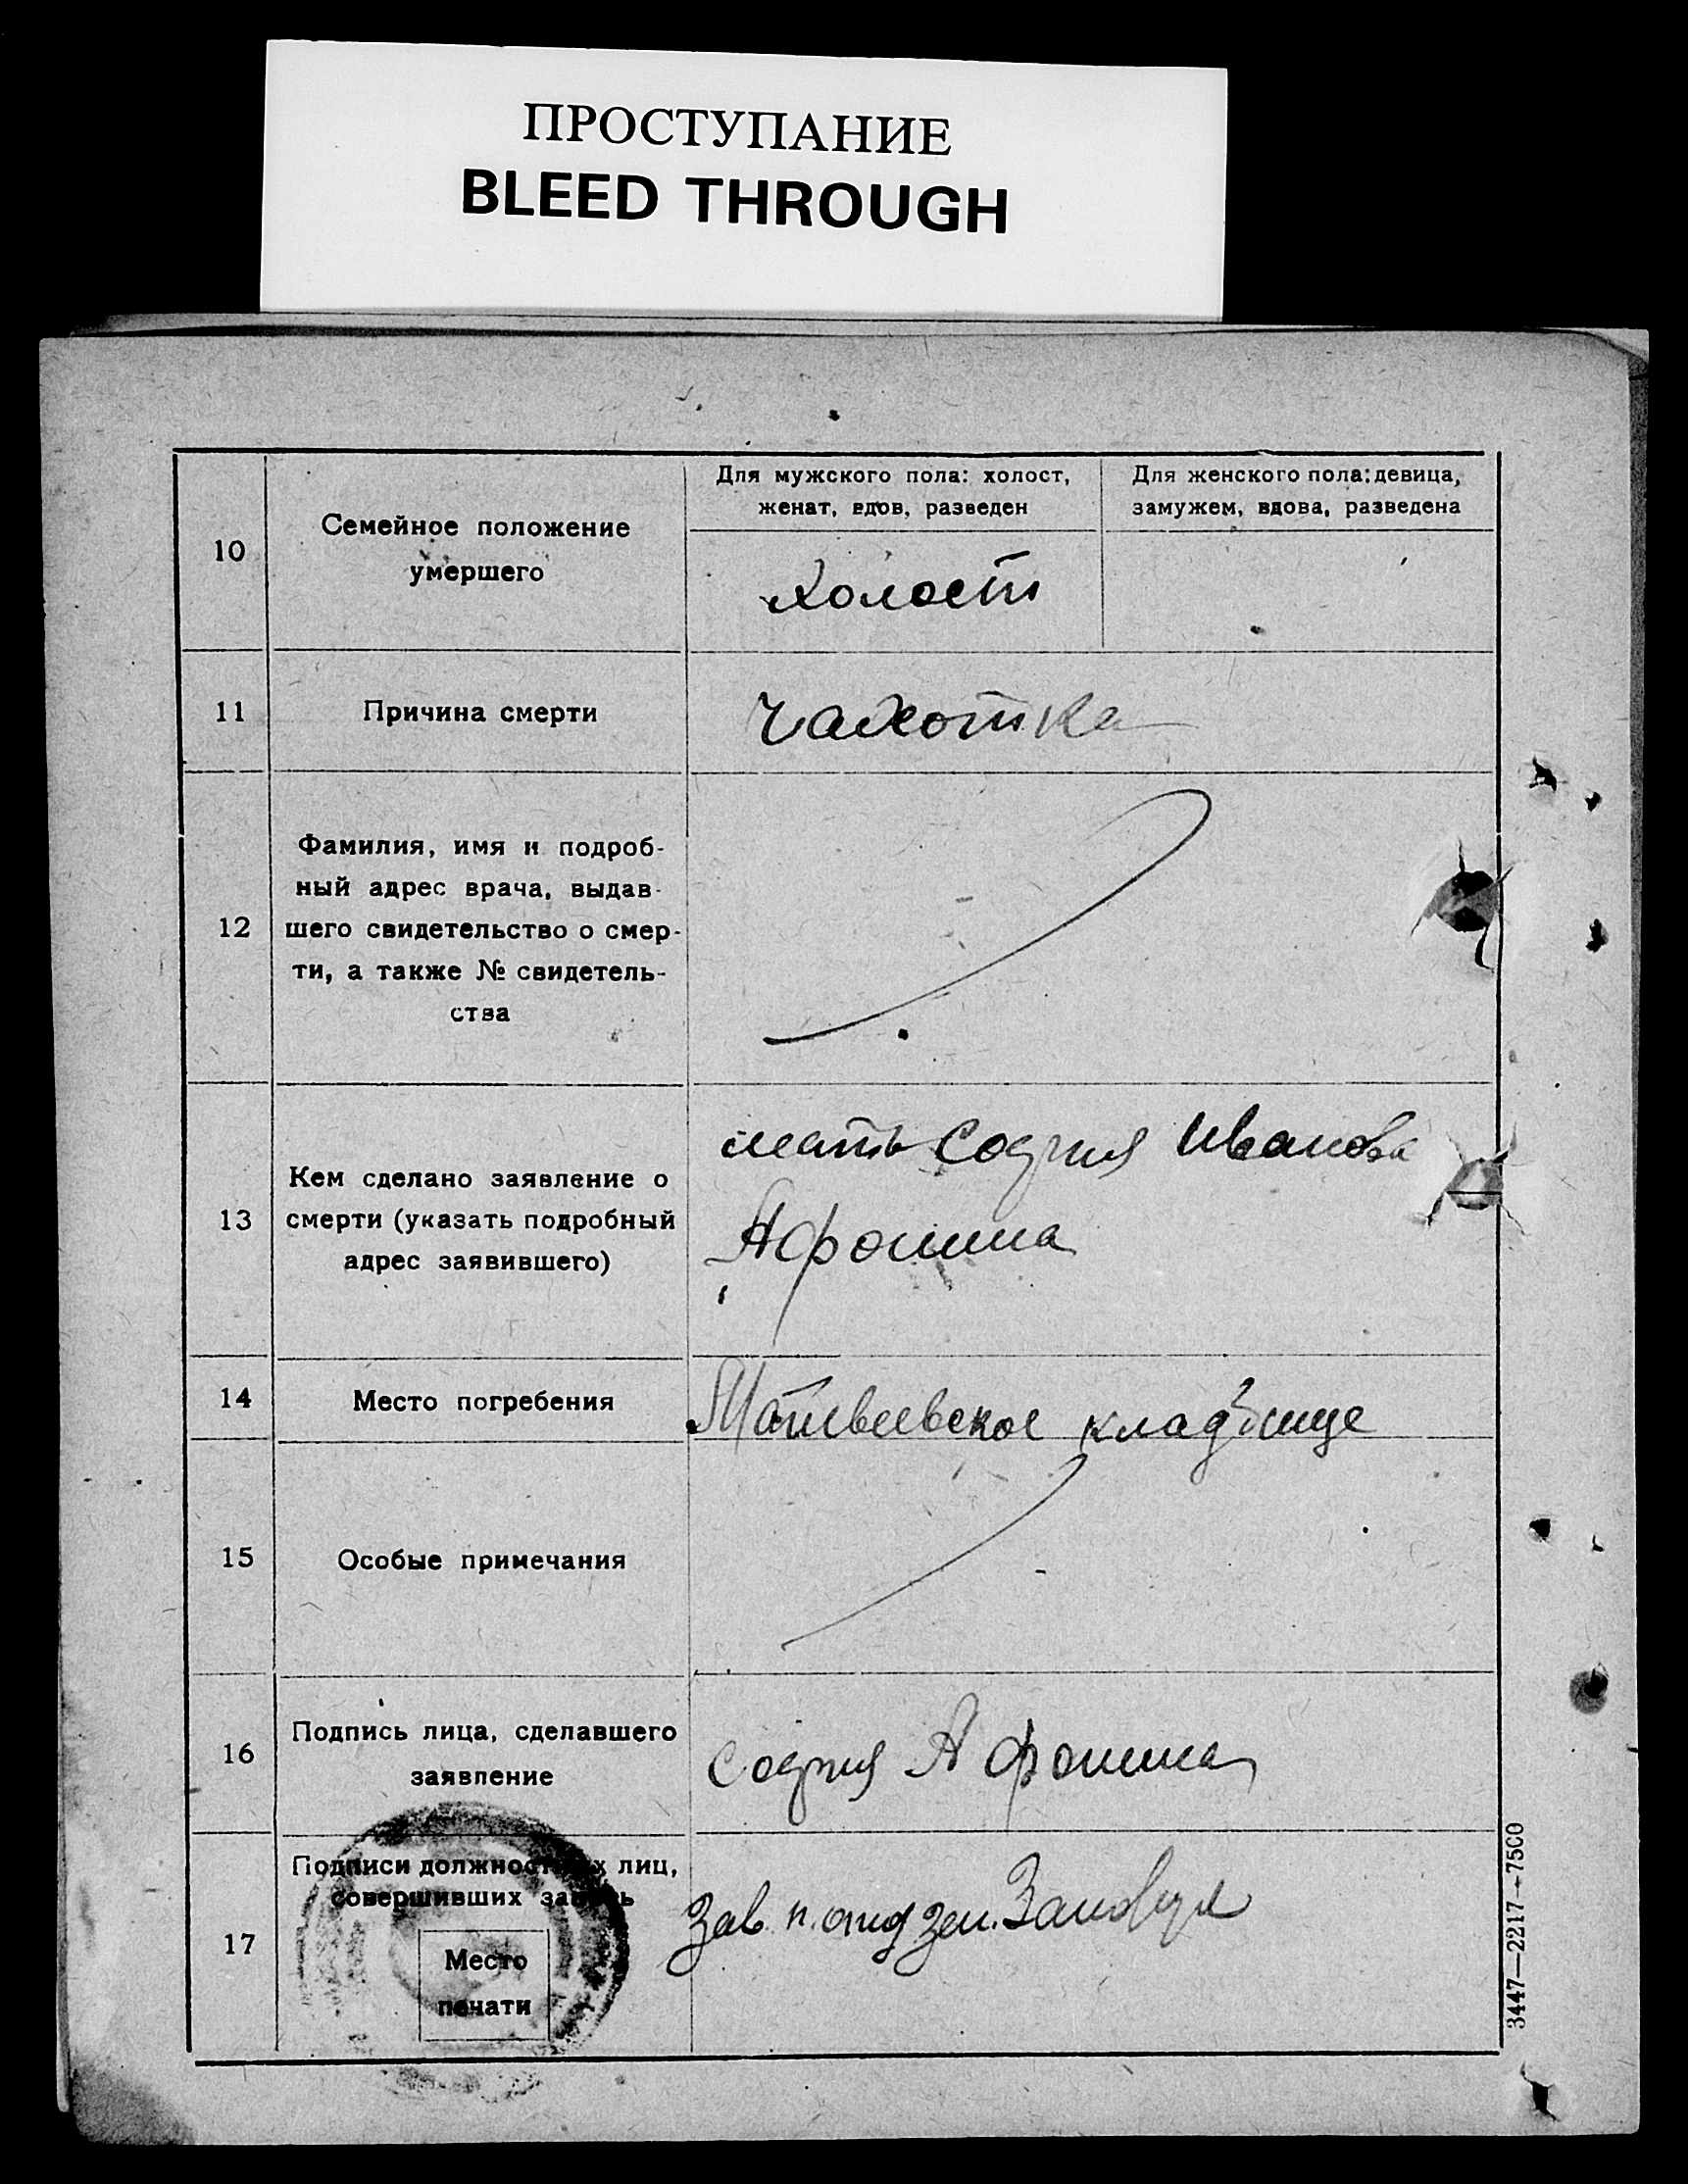 ПРОСТУПАНИЕ
BLEED THROUGH
Для мужского пола: холост,
женат, вдов, разведен
Для женского пола: девица,
замужем, вдова, разведена
10
Семейное положение
умершего
холост
11
Причина смерти
чахотка
12
Фамилия, имя и подроб-
ный адрес врача, выдав-
шего свидетельство о смер-
ти, а также № свидетель-
ства
13
Кем сделано заявление о
смерти (указать подробный
адрес заявившего)
мать София Иванова
Афонина
14
Место погребения
Матвеевское кладбище
15
Особые примечания
16
Подпись лица, сделавшего
заявление
София Афонина
17
Подписи должностных лиц,
совершивших запись
Место
печати
Зав.
3447—2217—7500